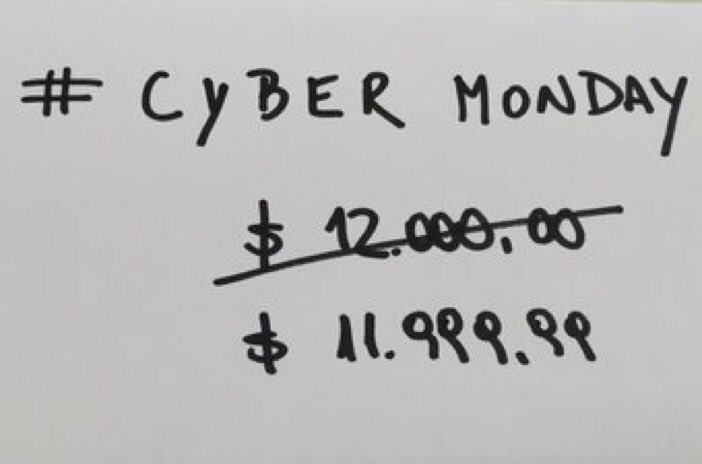 # CYBER MONDAY
$ 12.000,00
$ 11.999,99